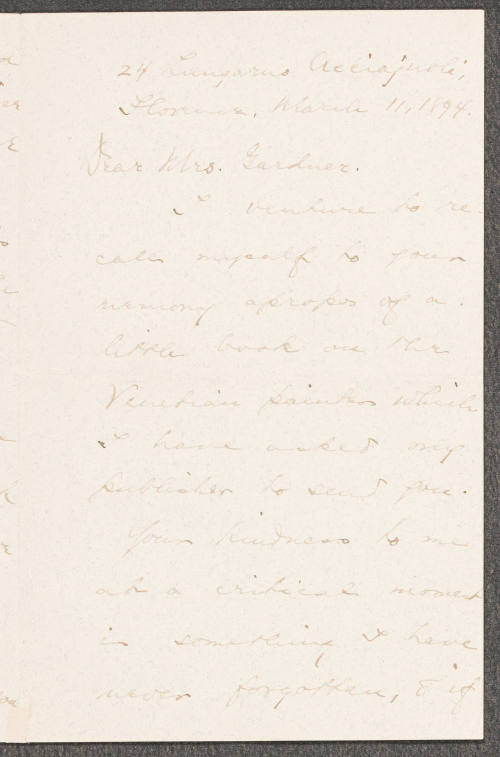 24 Lungarno Acciajuoli,
Florence, March 11, 1894.
Dear Mrs. Gardner.
I venture to re-
call myself to your
memory apropos of a
little book on the
Venetian painters which
I have asked my
publisher to send you.
Your kindness to me
at a critical moment
is something I have
never forgotten, & if